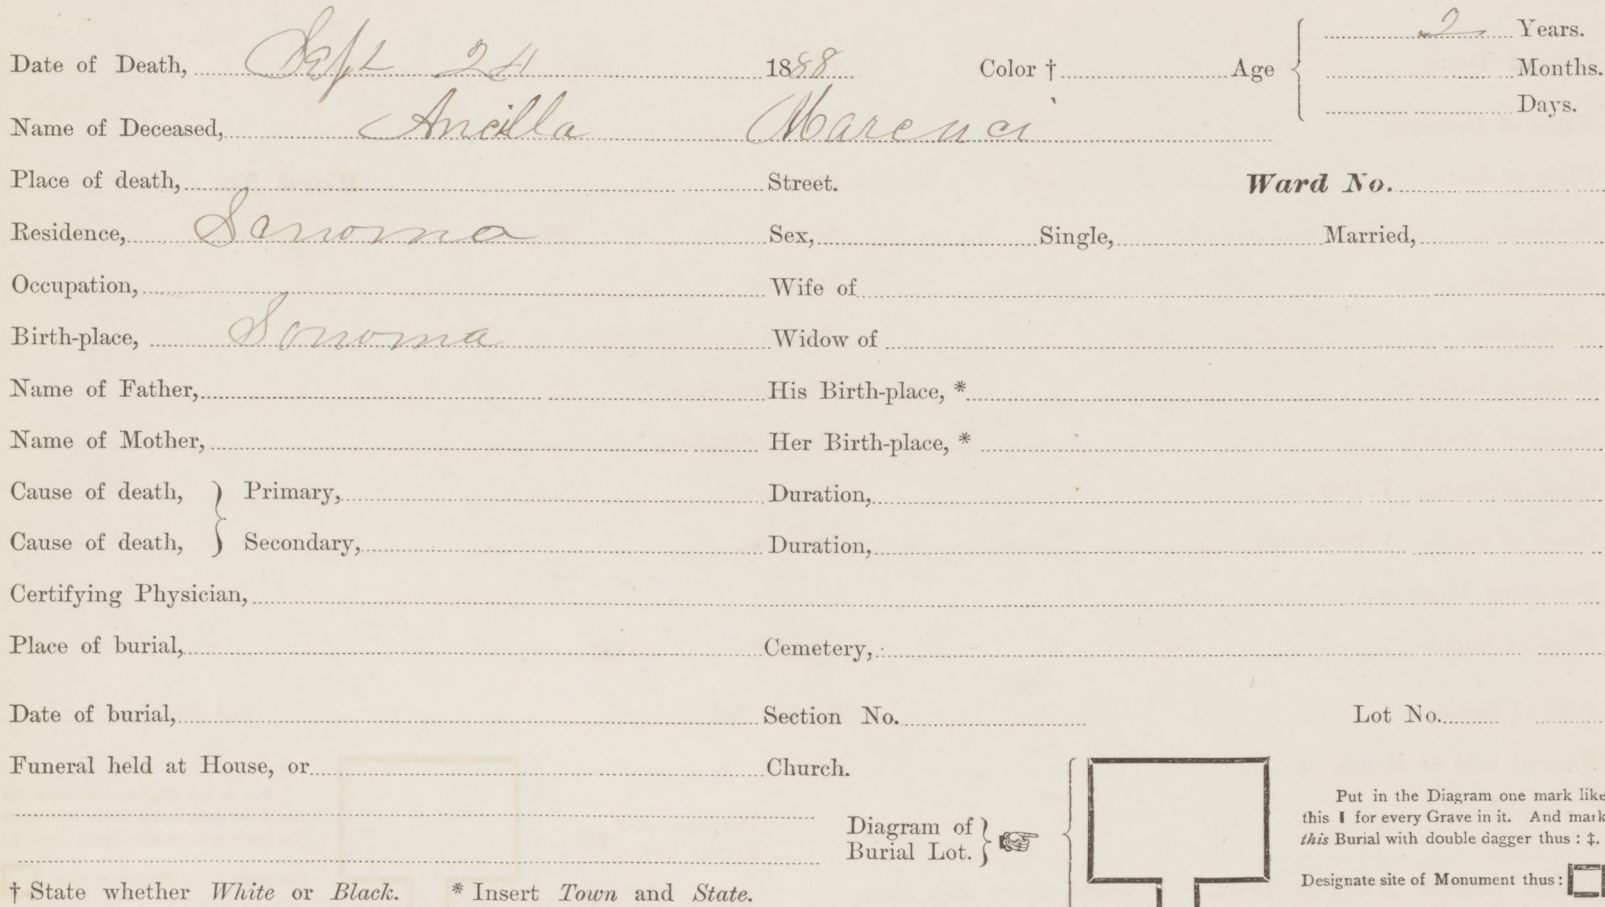 Date of Death, Sept 24 1888 Color † Age 2 Years.
Months.
Days.
Name of Deceased, Ancilla Marenci
Place of death, Street. Ward No.
Residence, Sonoma Sex, Single, Married,
Occupation, Wife of
Birth-place, Sonoma Widow of
Name of Father, His Birth-place, *
Name of Mother, Her Birth-place, *
Cause of death, } Primary, Duration,
Cause of death, } Secondary, Duration,
Certifying Physician,
Place of burial, Cemetery,
Date of burial, Section No. Lot No.
Funeral held at House, or Church.
Diagram of
Burial Lot.
Put in the Diagram one mark like
this ❙ for every Grave in it. And mark
this Burial with double dagger thus : ‡.
Designate site of Monument thus :
† State whether White or Black. * Insert Town and State.